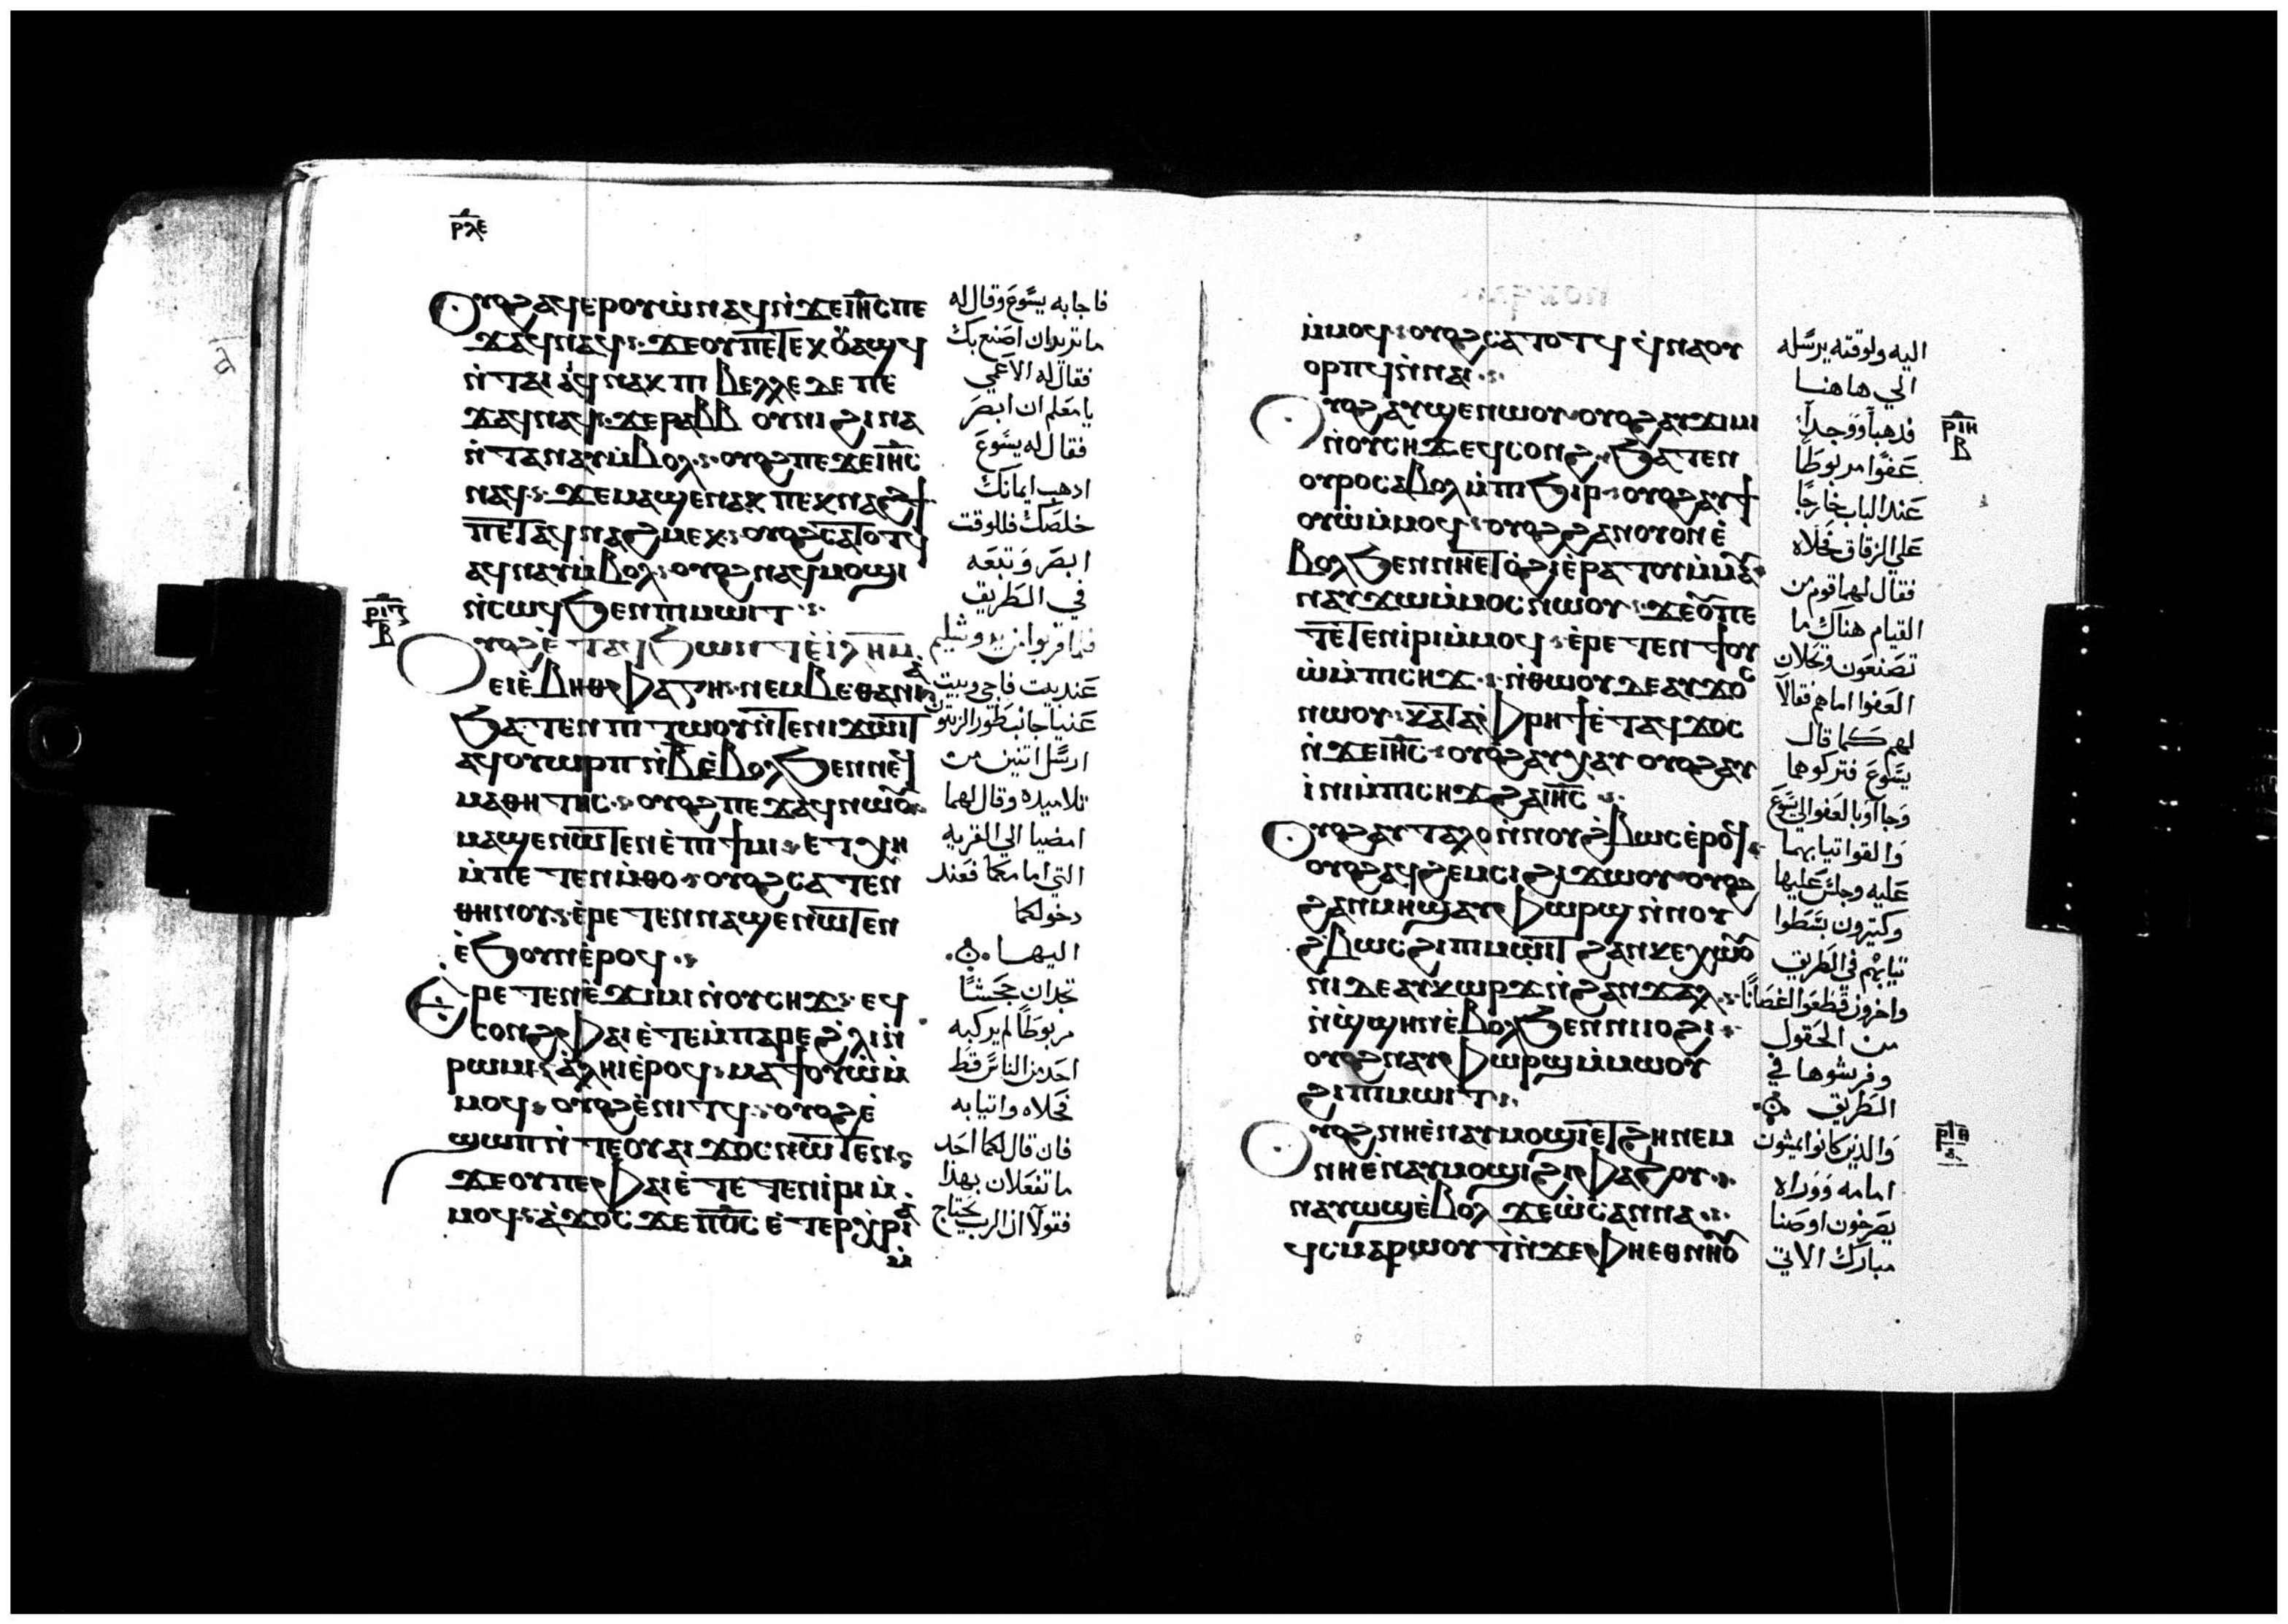 ⲣⲗⲉ
ⲟⲩⲟϩ ⲁϥⲉⲣⲟⲩⲱ̀ ⲛⲁϥ ⲛ̀ϫⲉ ⲓⲏ̅ⲥ̅ ⲡⲉ
ϫⲁϥ ⲛⲁϥ ϫⲉ ⲟⲩ ⲡⲉⲧⲉⲕⲟⲩⲁϣϥ
ⲛ̀ⲧⲁⲁⲓϥ ⲛⲁⲕ ⲡⲓⲃⲉⲗⲗⲉ ⲇⲉ ⲡⲉ
ϫⲁϥ ⲛⲁϥ ϫⲉ ⲣⲁⲃⲃⲟⲩⲛⲓ ϩⲓⲛⲁ
ⲛ̀ⲧⲁⲛⲁⲩ ⲙ̀ⲃⲟⲗ ⲟⲩⲟϩ ⲡⲉϫⲉ ⲓⲏ̅ⲥ̅
ⲛⲁϥ ϫⲉ ⲙⲁϣⲉⲛⲁⲕ ⲡⲉⲕⲛⲁϩϯ
ⲡⲉⲧⲁϥⲛⲁϩⲙⲉⲕ ⲟⲩⲟϩ ⲥⲁⲧⲟⲧϥ
ⲁϥⲛⲁⲩ ⲙ̀ⲃⲟⲗ ⲟⲩⲟϩ ⲛⲁϥⲙⲟϣⲓ
ⲛ̀ⲥⲱϥ ϧⲉⲛ ⲡⲓⲙⲱⲓⲧ
ⲟⲩⲟϩ ⲉ̀ⲧⲁϥϧⲱⲛⲧ ⲉ̀ⲓ̅ⲗ̅ⲏ̅ⲙ̅
ⲉⲓⲉ̀ ⲃⲏⲑⲫⲁⲅⲏ ⲛⲉⲙ ⲃⲉⲑⲁⲛⲓⲁ̀
ϧⲁⲧⲉⲛ ⲡⲓⲧⲱⲟⲩ ⲛ̀ⲧⲉ ⲛⲓϫⲱⲓⲧ
ⲁϥⲟⲩⲱⲣⲡ ⲛ̀ⲃ̅ ⲉ̀ⲃⲟⲗ ϧⲉⲛ ⲛⲉϥ
ⲙⲁⲑⲏⲧⲏⲥ ⲟⲩⲟϩ ⲡⲉϫⲁϥ ⲛⲱⲟⲩ
ⲙⲁϣⲉⲛⲱⲧⲉⲛ ⲉ̀ⲡⲓϯⲙⲓ ⲉⲧⲭⲏ
ⲙ̀ⲡⲉⲧⲉⲛⲙ̀ⲑⲟ ⲟⲩⲟϩ ⲥⲁⲧⲉⲛ
ⲑⲏⲛⲟⲩ ⲉ̀ⲣⲉⲧⲉⲛⲛⲁϣⲉⲛⲱⲧⲉⲛ
ⲉ̀ϧⲟⲩⲛ ⲉ̀ⲣⲟϥ
ⲉ̀ⲣⲉⲧⲉⲛⲉ̀ϫⲓⲙⲓ ⲛ̀ⲟⲩⲥⲏϫ ⲉϥ
ⲥⲟⲛϩ ⲫⲁⲓ ⲉ̀ⲧⲉ ⲙ̀ⲡⲁⲣⲉ ϩ̀ⲗⲓ ⲛ̀
ⲣⲱⲙⲓ ⲁ̀ⲗⲏⲓ ⲉ̀ⲣⲟϥ ⲙⲁⲧⲟⲩⲱ̀ ⲙ̀
ⲙⲟϥ ⲟⲩⲟϩ ⲉ̀ⲛⲓⲧϥ ⲟⲩⲟϩ ⲉ̀
ϣⲱⲡ ⲛ̀ⲧⲉ ⲟⲩⲁⲓ ϫⲟⲥ ⲛⲱⲧⲉⲛ
ϫⲉ ⲟⲩ ⲡⲉ ⲫⲁⲓ ⲉ̀ⲧⲉⲧⲉⲛⲓ̀ⲣⲓ ⲙ̀
ⲙⲟϥ ⲁ̀ϫⲟⲥ ϫⲉ ⲡϭ̅ⲥ̅ ⲉⲧⲉⲣⲭ̀ⲣⲓⲁ̀
ⲙ̀
ⲣⲓⲍ
ⲃ
فاجابه يسوع وقال له
ما تريد ان اصنع بك
فقال له الاعمي
يا معلم ان ابصر
فقال له يسوع
اذهب ايمانك
خلصك فللوقت
ابصر وتبعه
في الطريق
فلما قربوا من يروشليم
عند بيت فاجي وبيت
عنيا جانب طور الزيتون
ارسل اتنين من
تلاميذه وقال لهما
امضيا الي القريه
التي امامكما فعند
دخولكما
اليها
تجدان جحشًا
مربوطًا لم يركبه
احد من الناس قط
فحلاه واتيا به
فان قال لكما احد
ما تفعلان بهذا
فقولا ان الرب يحتاج
ⲙ̀ⲙⲟϥ ⲟⲩⲟϩ ⲥⲁⲧⲟⲧϥ ϥ̀ⲛⲁⲟⲩ
ⲟⲣⲡϥ ⲙ̀ⲛⲁⲓ
ⲟⲩⲟϩ ⲁⲩϣⲉⲛⲱⲟⲩ ⲟⲩⲟϩ ⲁⲩϫⲓⲙⲓ
ⲛ̀ⲟⲩⲥⲏϫ ⲉϥⲥⲟⲛϩ ϧⲁⲧⲉⲛ
ⲟⲩⲣⲟ ⲥⲁⲃⲟⲗ ⲙ̀ⲡⲓϧⲓⲣ ⲟⲩⲟϩ ⲁⲩϯ
ⲟⲩⲱ̀ ⲙ̀ⲙⲟϥ ⲟⲩⲟϩ ϩⲁⲛⲟⲩⲟⲛ ⲉ̀
ⲃⲟⲗ ϧⲉⲛ ⲛⲏⲉⲧⲟ̀ϩⲓ ⲉ̀ⲣⲁⲧⲟⲩ ⲙ̀ⲙⲁⲩ
ⲛⲁⲩϫⲱ ⲙ̀ⲙⲟⲥ ⲛⲱⲟⲩ ϫⲉ ⲟⲩ ⲡⲉ
ⲧⲉ̀ⲧⲉⲛⲓ̀ⲣⲓ ⲙ̀ⲙⲟϥ ⲉ̀ⲣⲉⲧⲉⲛϯⲟⲩ
ⲱ̀ ⲙ̀ⲡⲓⲥⲏϫ ⲛ̀ⲑⲱⲟⲩ ⲇⲉ ⲁⲩϫⲟⲥ
ⲛⲱⲟⲩ ⲕⲁⲧⲁ ⲫⲣⲏϯ ⲉ̀ⲧⲁϥϫⲟⲥ
ⲛ̀ϫⲉ ⲓⲏ̅ⲥ̅ ⲟⲩⲟϩ ⲁⲩⲭⲁⲩ ⲟⲩⲟϩ ⲁⲩ
ⲓ̀ⲛⲓ ⲙ̀ⲡⲓⲥⲏϫ ϩⲁ ⲓⲏ̅ⲥ̅
ⲟⲩⲟϩ ⲁⲩⲧⲁⲗⲟ ⲛ̀ⲛⲟⲩϩ̀ⲃⲱⲥ ⲉ̀ⲣⲟϥ
ⲟⲩⲟϩ ⲁϥϩⲉⲙⲥⲓ ϩⲓϫⲱⲟⲩ ⲟⲩⲟϩ
ϩⲁⲛⲙⲏϣ ⲁⲩⲫⲱⲣϣ ⲛ̀ⲛⲟⲩ
ϩ̀ⲃⲱⲥ ϩⲓ ⲡⲓⲙⲱⲓⲧ ϩⲁⲛⲕⲉⲭⲱⲟⲩ
ⲛⲓ ⲇⲉ ⲁⲩⲕⲱⲣϫ ⲛ̀ϩⲁⲛϫⲁⲗ
ⲛ̀ϣ̀ϣⲏⲛ ⲉ̀ⲃⲟⲗ ϧⲉⲛ ⲛⲓⲓⲟϩⲓ
ⲟⲩⲟϩ ⲛⲁⲩⲫⲱⲣϣ ⲙ̀ⲙⲱⲟⲩ
ϩⲓ ⲡⲓⲙⲱⲓⲧ
ⲟⲩⲟϩ ⲛⲏⲉ̀ⲛⲁⲩⲙⲟϣⲓ ⲉⲧϩⲏ ⲛⲉⲙ
ⲛⲏⲉ̀ⲛⲁⲩⲙⲟϣⲓ ϩⲓ ⲫⲁϩⲟⲩ
ⲛⲁⲩⲱϣ ⲉ̀ⲃⲟⲗ ϫⲉ ⲱ̀ⲥⲁⲛⲛⲁ
ϥ̀ⲥⲙⲁⲣⲱⲟⲩⲧ ⲛ̀ϫⲉ ⲫⲏⲉⲑⲛⲏⲟⲩ
اليه ولوقته يرسله
الي هاهنا
فذهبا ووجدا
عفوًا مربوطًا
عند الباب خارجًا
علي الزقاق فحلاه
فقال لهما قوم من
القيام هناك ما
تصنعون وتحلان
العفوا اما هم فقالا
لهم كما قال
يسوع فتركوهما
وجاآوا بالعفو الي يسوع
والقوا تيابهما
عليه وجلس عليها
وكتيرون بسطوا
تيابهم في الطريق
واخرون قطعوا اغصانًا
من الحقول
وفرشوها في
الطريق
والذين كانوا يمشون
امامه ووراه
يصرخون اوصنا
مبارك الاتي
ⲣⲓⲏ
ⲃ